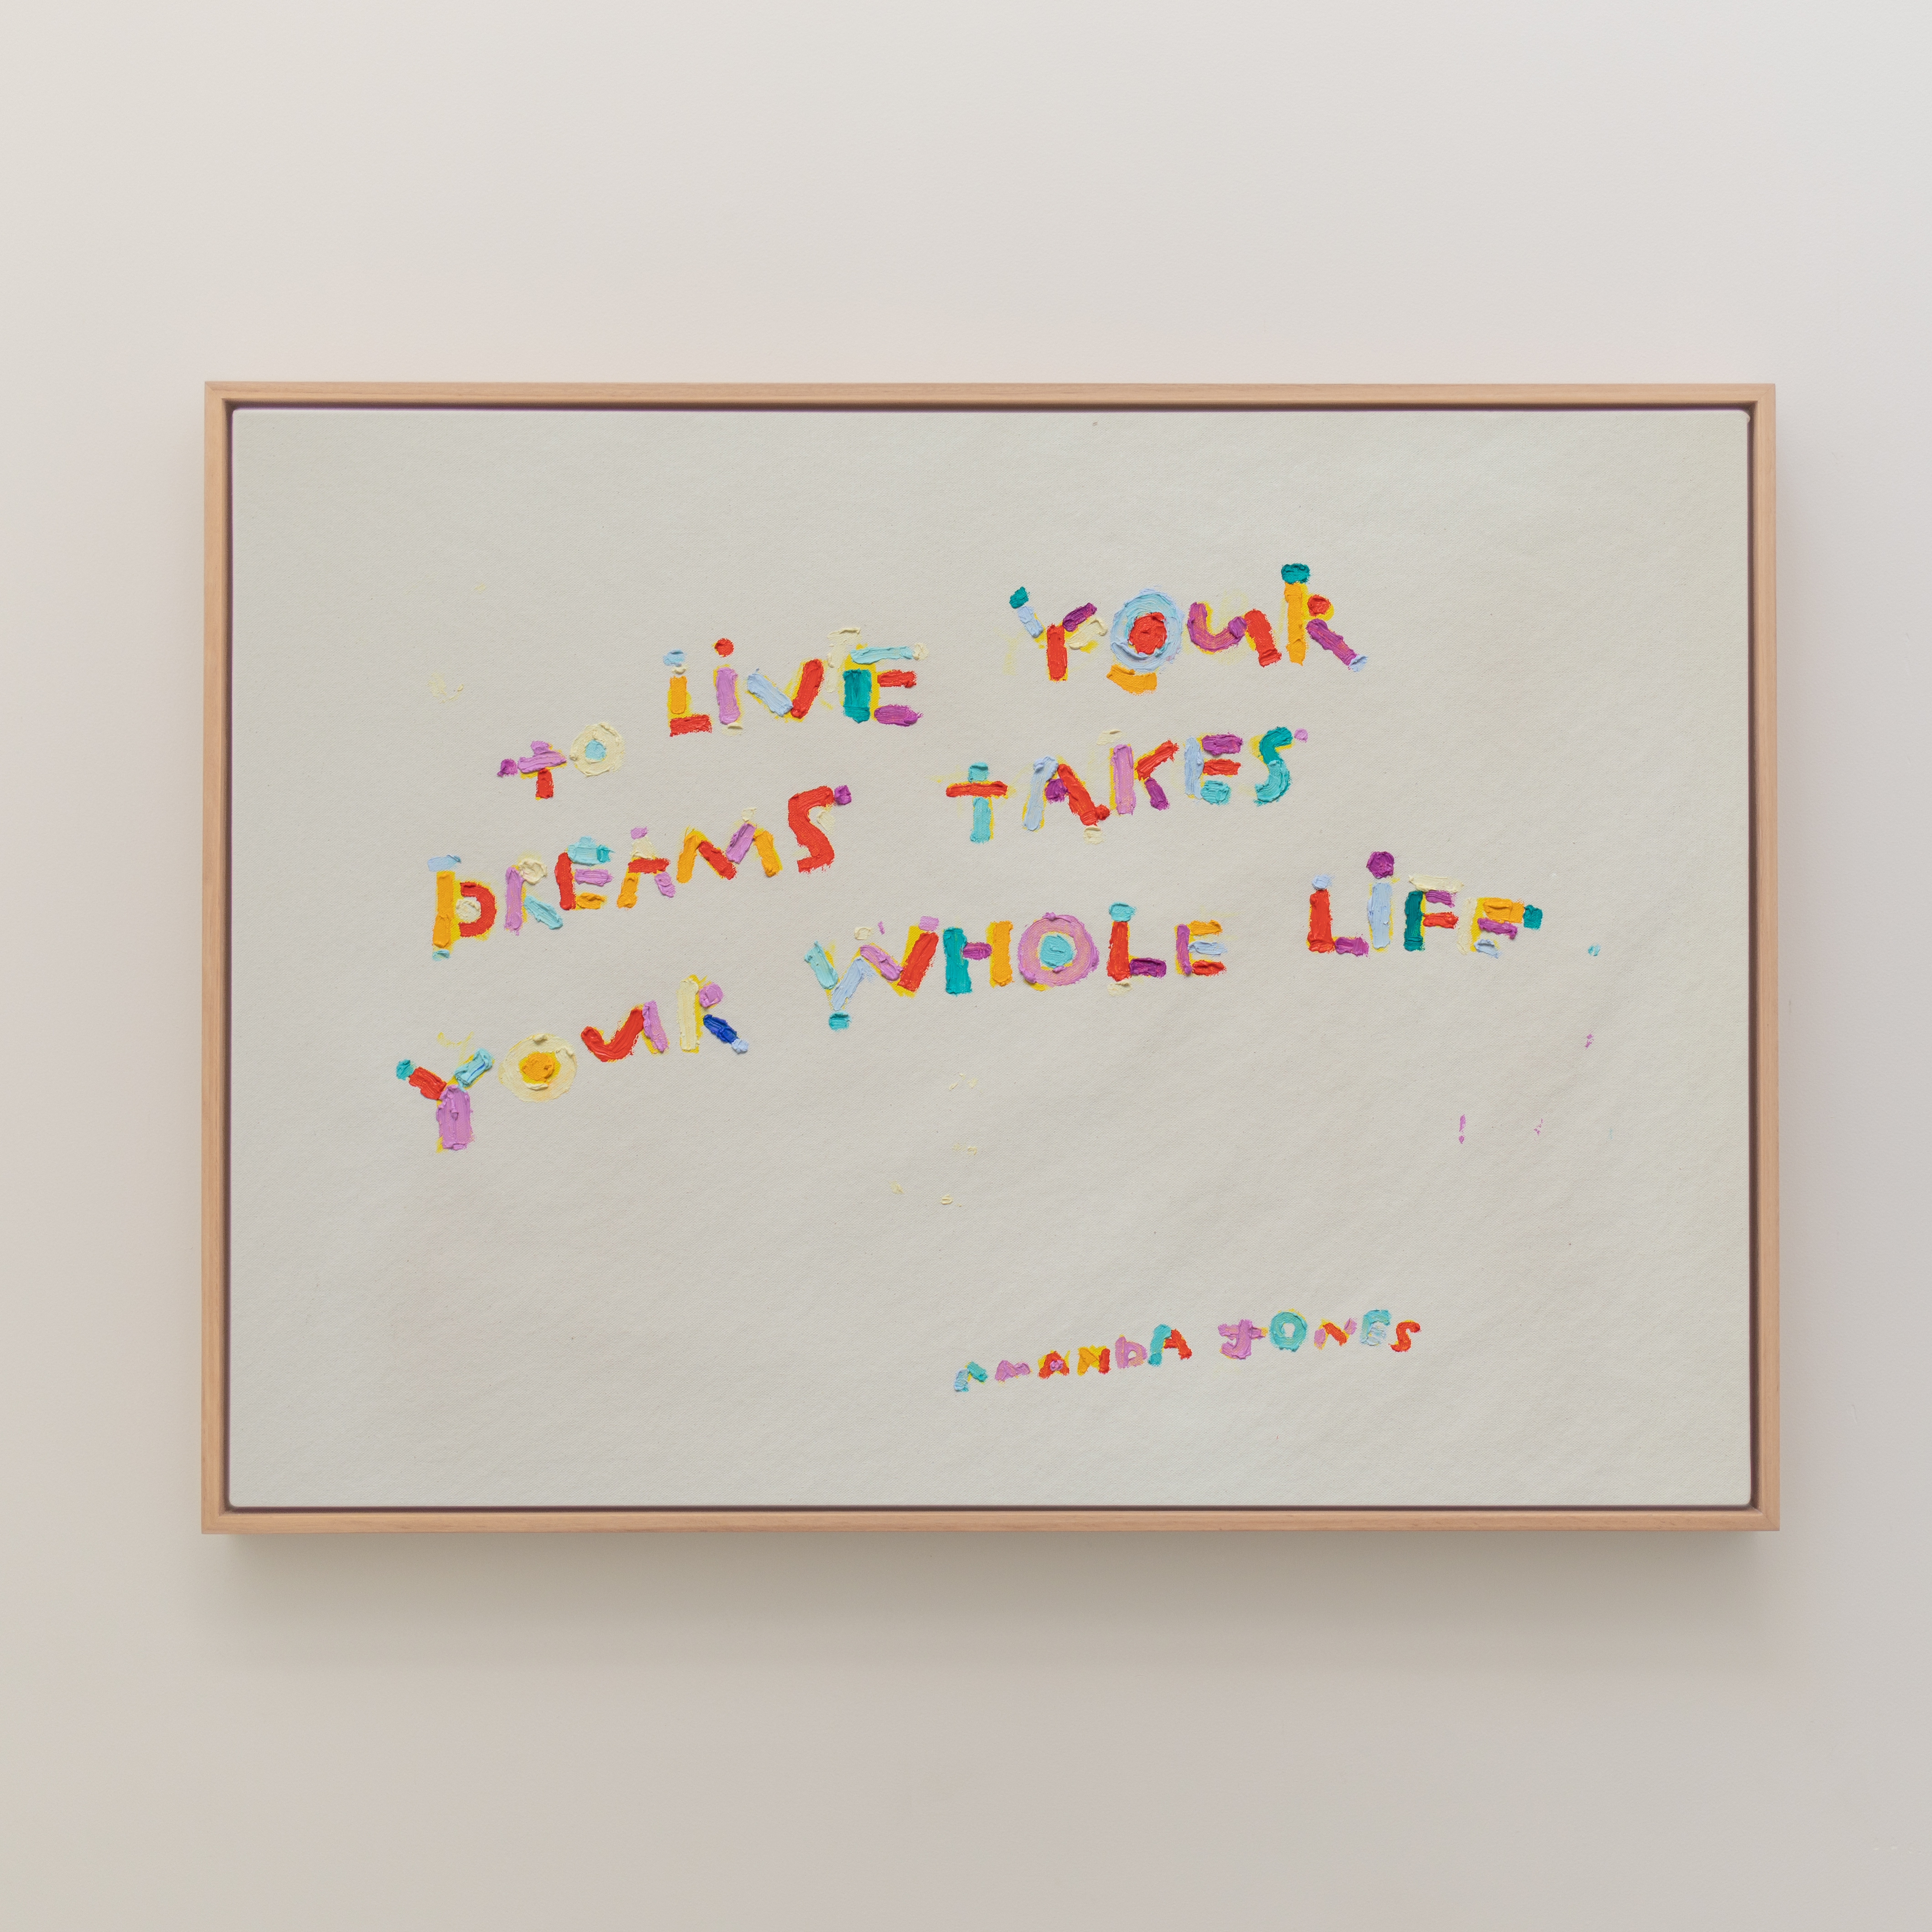 TO LiVE YOUR
DREAMS TAKES
YOUR WHOLE LiFE
AMANDA JONES